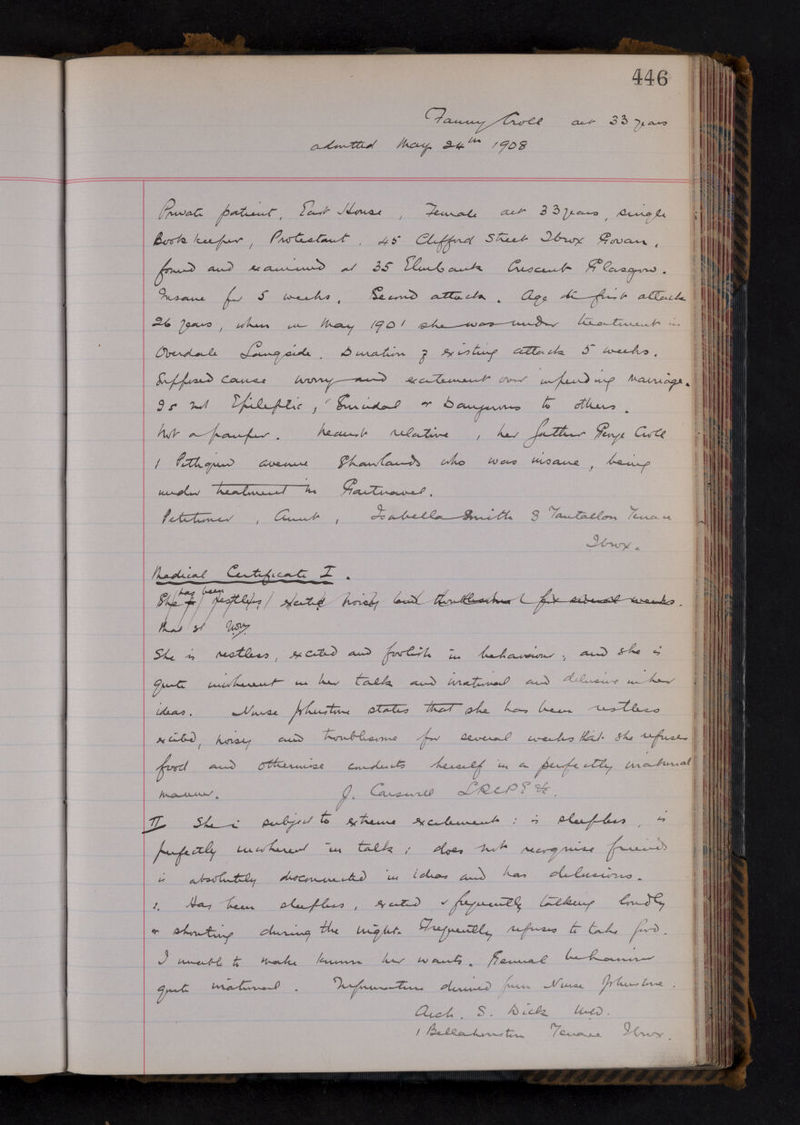 446
Fanny Croll aet 33 years
admitted May 24th 1908
Private patient, East House, Female aet 33 years, single
Book keeper, Protestant. 45 Clifford Street Ibrox Govan,
found and examined at 35 Elmbank Crescent Glasgow.
Insane for 5 weeks. Second attack. Age at first attack
26 years, when in May 1901 she was under treatment in
Overdale Langside. Duration of existing attack 5 weeks.
Supposed cause worry and excitement over impending marriage.
Is not Epileptic, Suicidal or Dangerous to others.
Not a pauper. Nearest relative, her father George Croll
1 avenue Shawlands who was insane, being
under treatment in Gartnavel.
Petitioner, Aunt, Isabella Smith 8 Tantallon Terrace
Ibrox.
Medical Certificate I.
She has been restless excited noisy and troublesome for several weeks.
She is restless, excited and foolish in behaviour, and she is
quite incoherent in her talk and irrational and delusive in her
ideas. Nurse Johnstone states that she has been restless
excited, noisy and troublesome for several weeks that she refuses
food and otherwise conducts herself in a perfectly irrational
manner. J. Carswell LRCPE &c.
II She is subject to extreme excitement: is sleepless, is
perfectly incoherent in talk; does not recognise friends
is absolutely disconnected in ideas and has delusions.
2. Has been sleepless, excited & frequently talking loudly
or shouting during the night. Frequently refuses to take food.
I unable to make known her wants. General behaviour
quite irrational. Information derived from Nurse Johnstone.
Arch. S. Dick MD.
1 Bellahouston Terrace Ibrox.